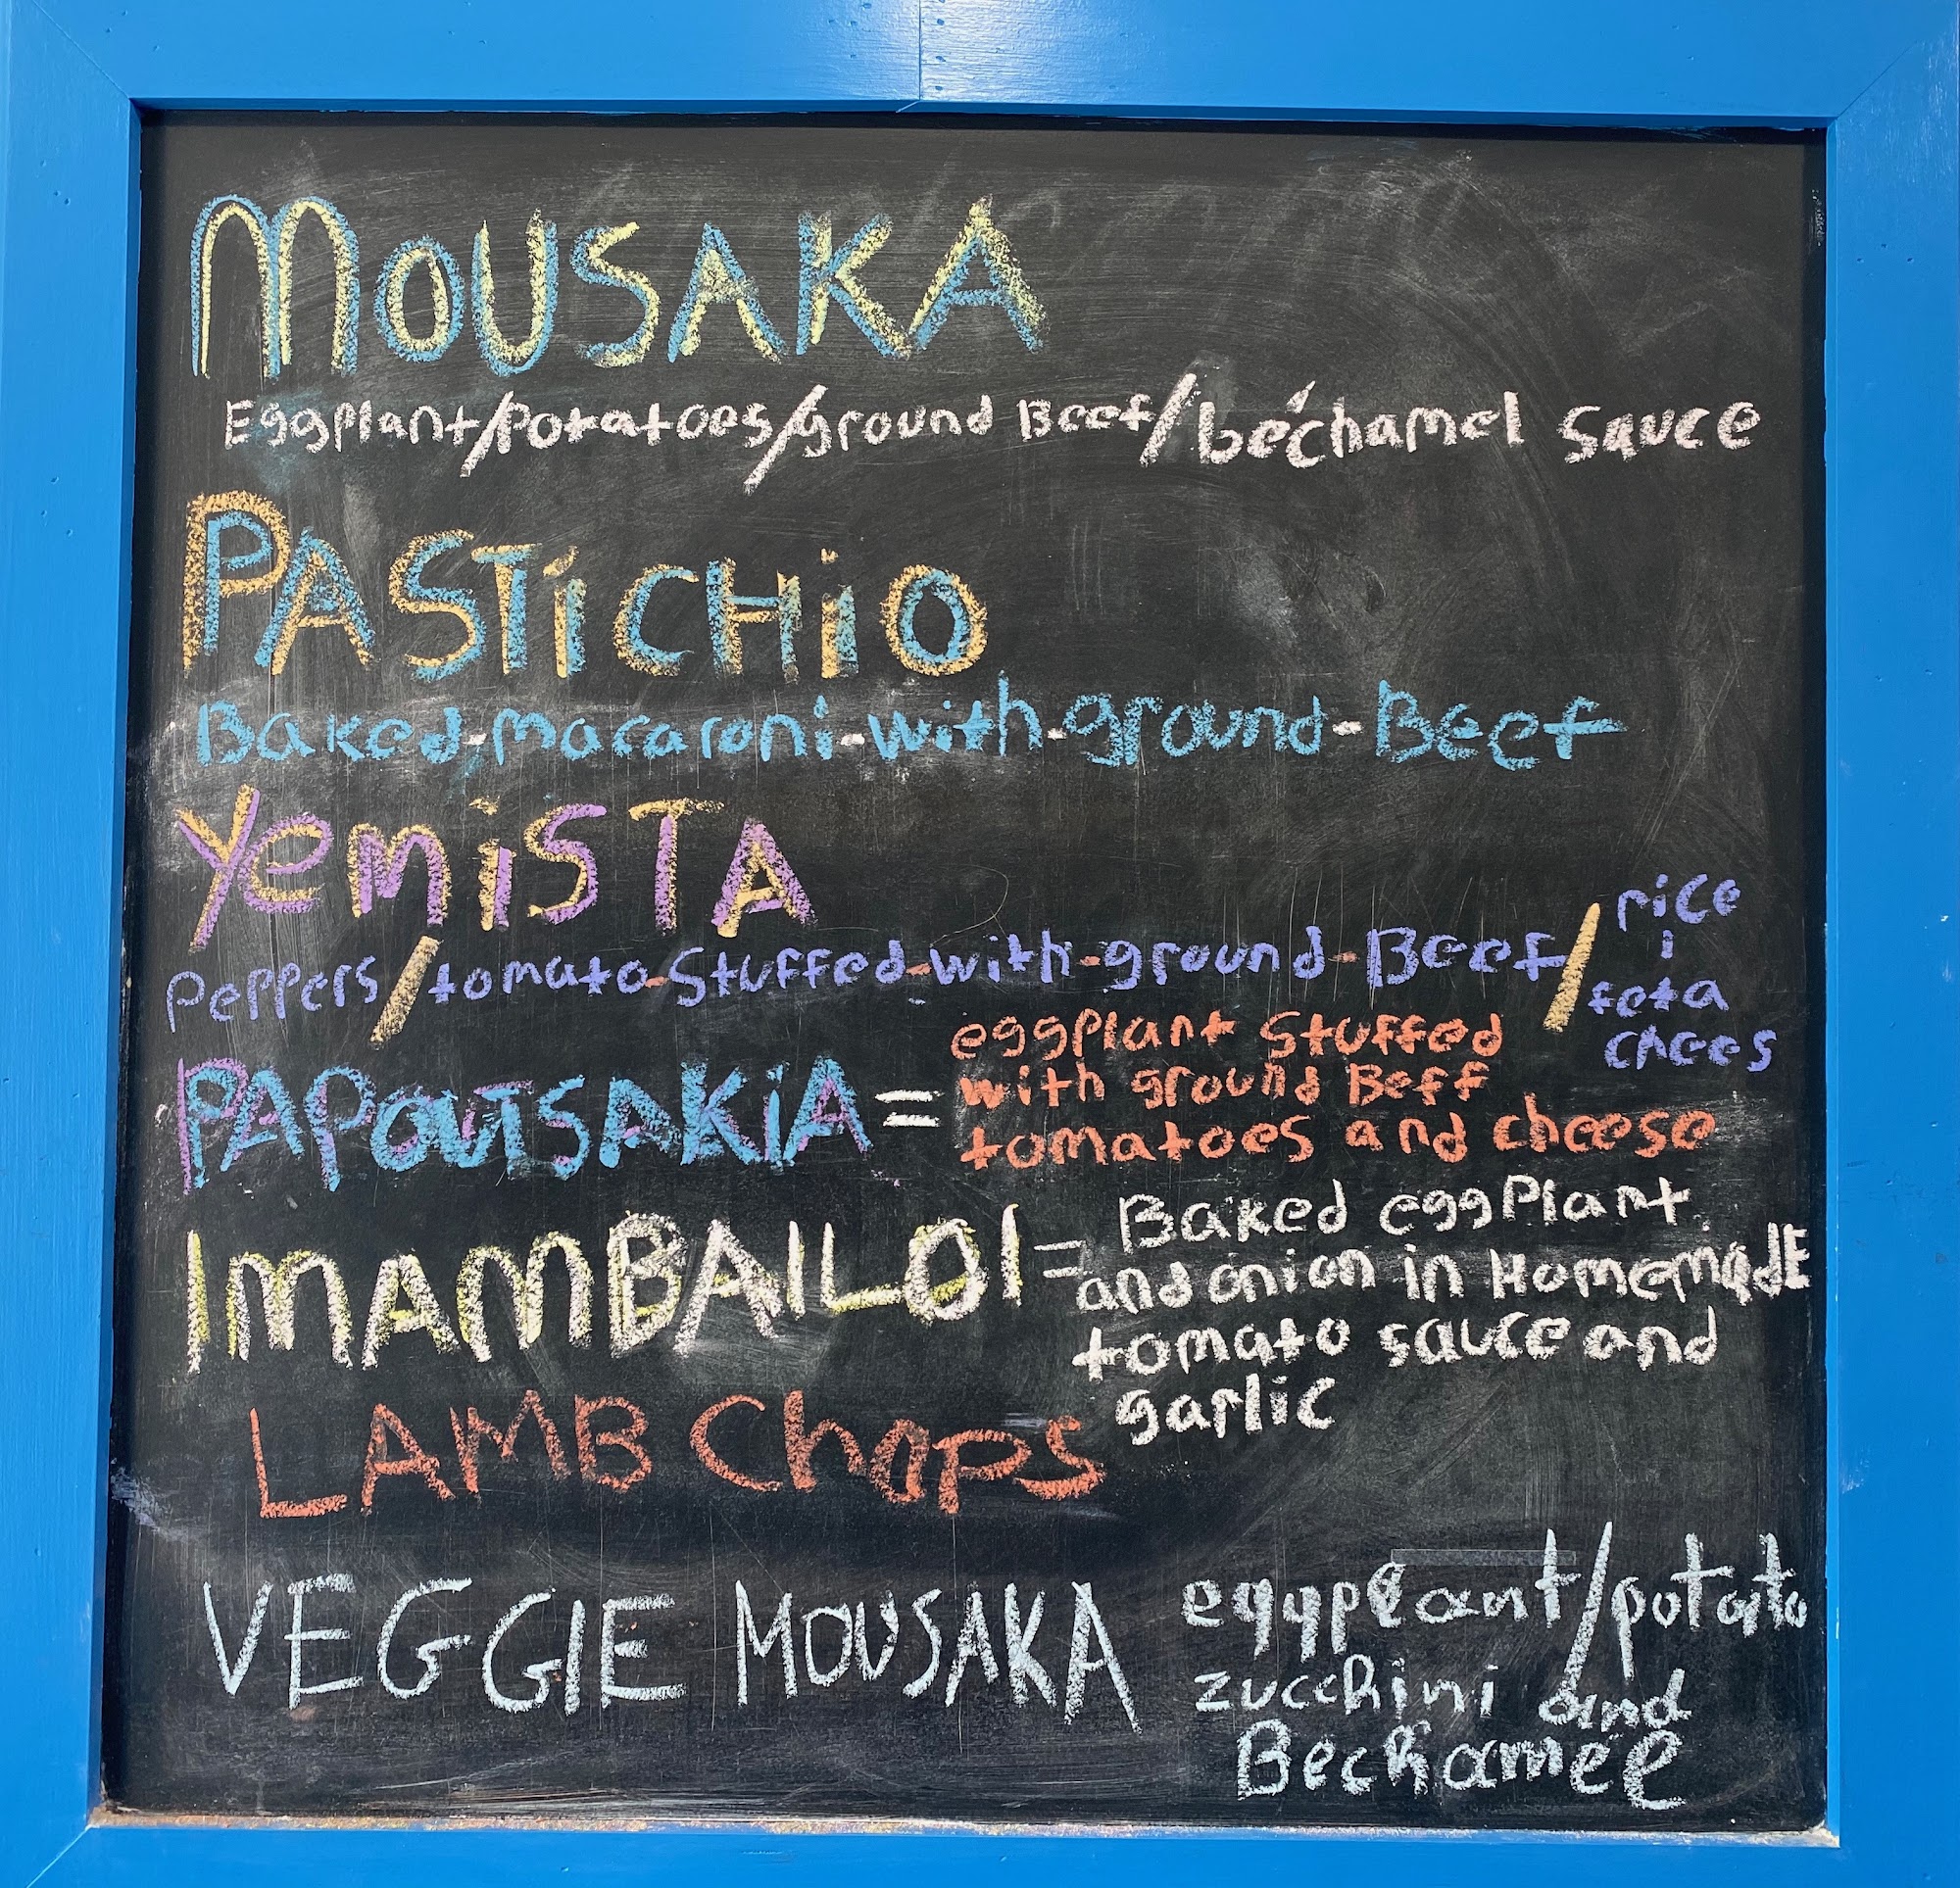 MOUSAKA
Eggplant/Potatoes/ground Beef/béchamel sauce
PASTiCHiO
Baked-macaroni-with-ground-Beef
YemiSTA
Peppers/tomato-Stuffed-with-ground-Beef/rice
feta
chees
PAPOUTSAKiA = eggplant Stuffed
with ground Beff
tomatoes and cheese
IMAMBAILOI = Baked eggPlant
and onion in HomemadE
tomato sauce and
garlic
LAMB Chops
VEGGIE MOUSAKA eggplant/potato
zucchini and
Bechamel